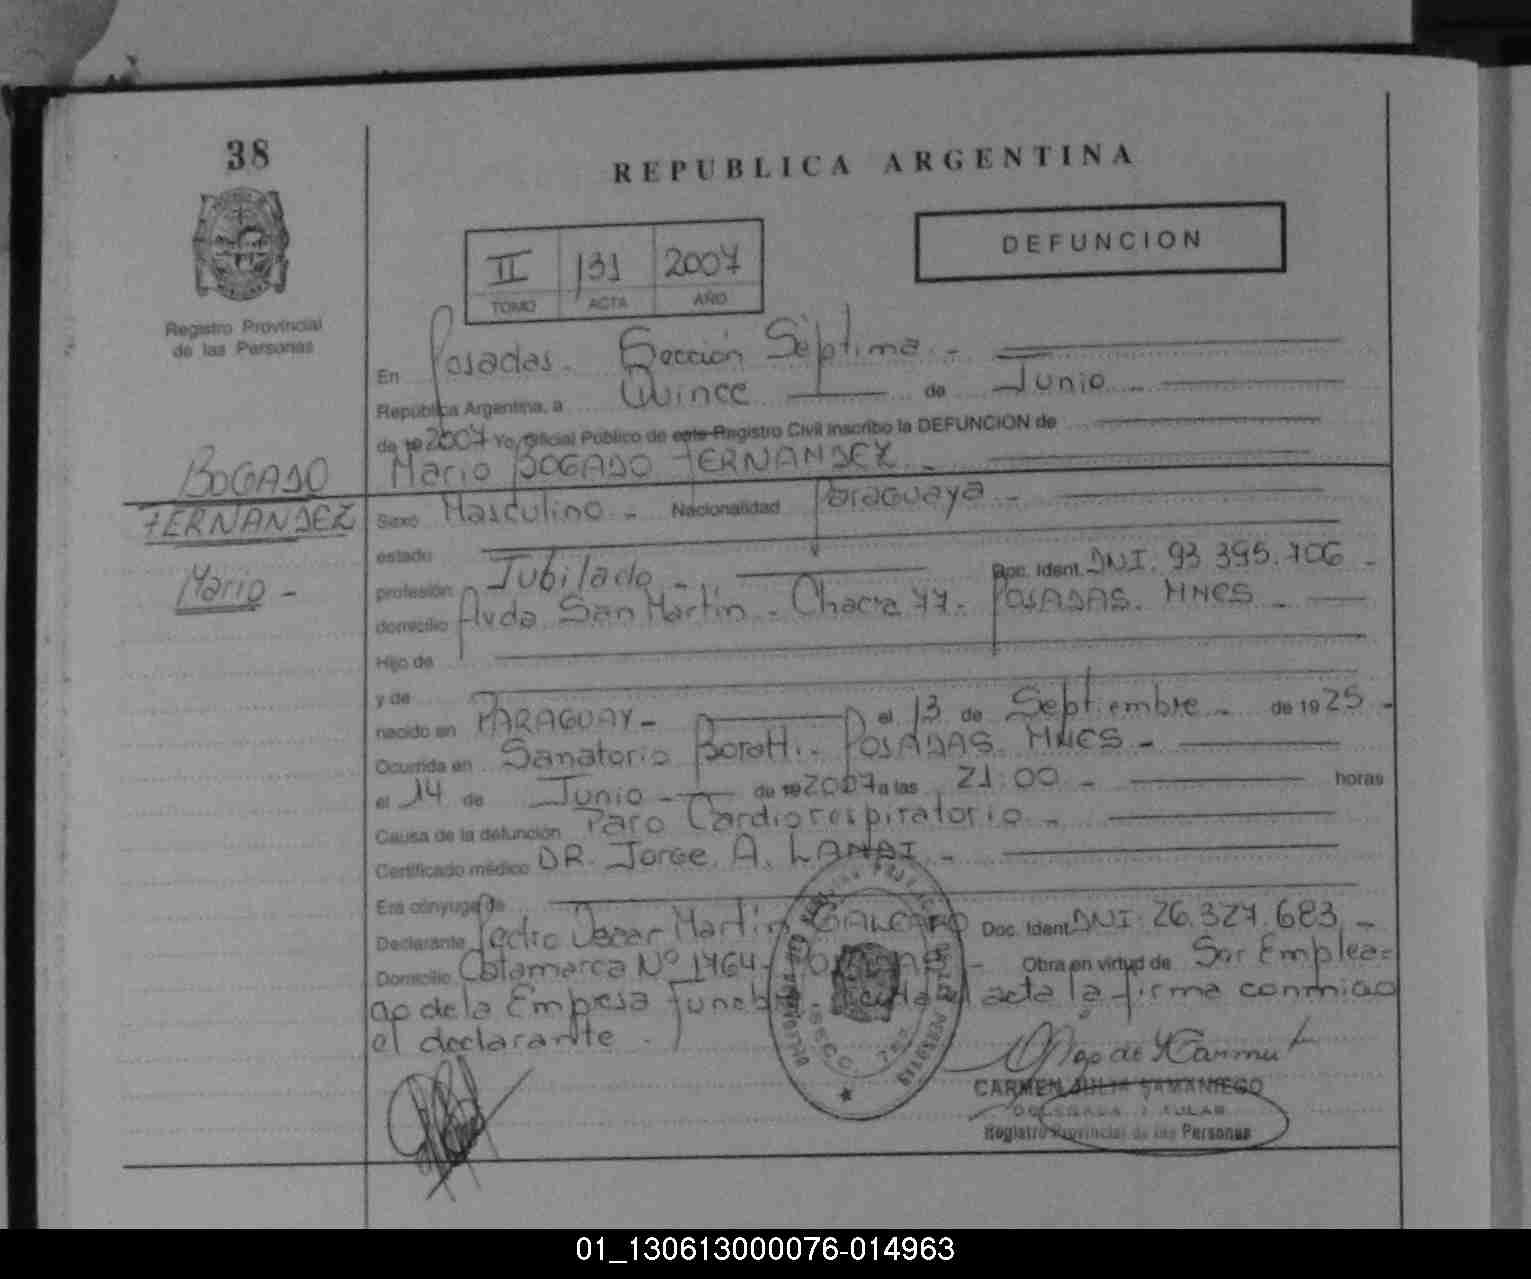 38
REPUBLICA ARGENTINA
DEFUNCION
II 131 2007
TOMO ACTA AÑO
Registro Provincial
de las Personas
En Posadas. Sección Séptima -
República Argentina, a Quince de Junio -
de 19 2007 Yo, Oficial Público de este Registro Civil inscribo la DEFUNCION de
BOGADO
FERNANDEZ
Mario -
Mario BOGADO FERNANDEZ -
Sexo Masculino - Nacionalidad Paraguaya -
estado
profesión Jubilado - Doc. Ident. DNI. 93 395.706 -
domicilio Avda San Martín - Chacra 77 - POSADAS. MNES -
Hijo de
y de
nacido en PARAGUAY - el 13 de Septiembre - de 19 25 -
Ocurrida en Sanatorio Boratti - POSADAS. MNES -
el 14 de Junio - de 19 2007 a las 21:00 - horas
Causa de la defunción Paro Cardiorespiratorio -
Certificado médico DR. Jorge A. LANARI -
Era cónyuge de
Declarante Pedro Oscar Martin GALEANO Doc. Ident DNI. 26.327.683 -
Domicilio Catamarca Nº 1464 - POSADAS - Obra en virtud de Ser Emplea=
do de la Empresa Funebre. Leída el acta la firma conmigo
el declarante.
CARMEN JULIA SAMANIEGO
DELEGADA TITULAR
Registro Provincial de las Personas
01_130613000076-014963